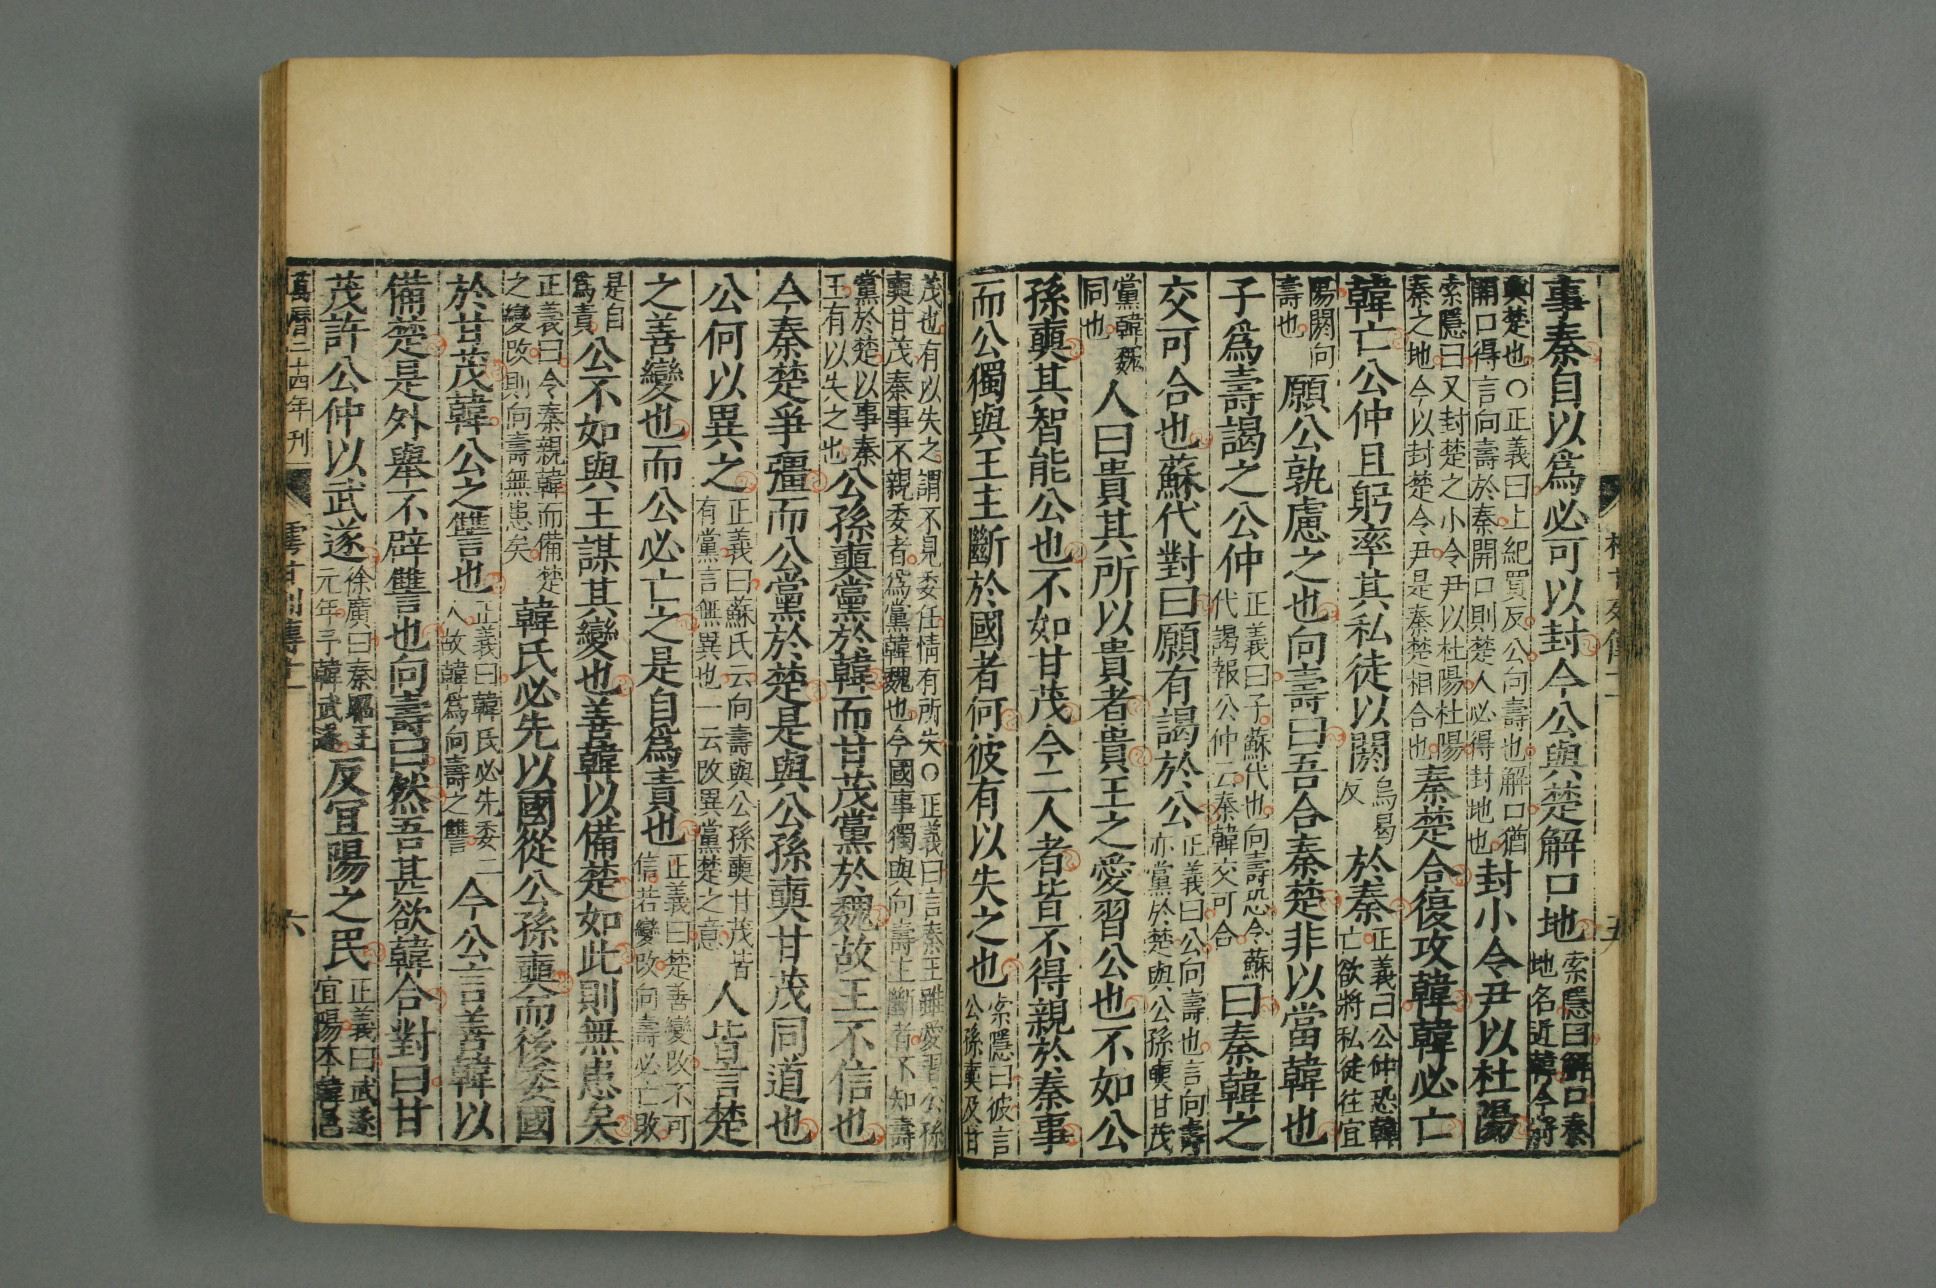 事秦自以爲必可以封今公與楚解口地索隱曰解口秦地名近韓今將
與楚也○正義曰上紀買反公向壽也解口猶開口得言向壽於秦開口則楚人必得封地也封小令尹以杜陽
索隱曰又封楚之小令尹以杜陽杜陽秦之地今以封楚令尹是秦楚相合也秦楚合復攻韓韓必亡
韓亡公仲且躬率其私徒以閼烏曷反於秦正義曰公仲恐韓亡欲將私徒往宜
陽閼向壽也願公孰慮之也向壽曰吾合秦楚非以當韓也
子爲壽謁之公仲正義曰子蘇代也向壽恐令蘇代謁報公仲云秦韓交可合曰秦韓之
交可合也蘇代對曰願有謁於公正義曰公向壽也言向壽亦黨於楚與公孫奭甘茂
黨韓魏同也人曰貴其所以貴者貴王之愛習公也不如公
孫奭其智能公也不如甘茂今二人者皆不得親於秦事
而公獨與王主斷於國者何彼有以失之也索隱曰彼言公孫奭及甘
茂也有以失之謂不見委任情有所失○正義曰言秦王雖愛習公孫奭甘茂秦事不親委者爲黨韓魏也今國事獨與向壽主斷者不知壽
黨於楚以事秦王有以失之也公孫奭黨於韓而甘茂黨於魏故王不信也
今秦楚爭彊而公黨於楚是與公孫奭甘茂同道也
公何以異之正義曰蘇氏云向壽與公孫奭甘茂皆有黨言無異也一云改異黨楚之意人皆言楚
之善變也而公必亡之是自爲責也正義曰楚善變改不可信若變改向壽必亡敗
是自爲責公不如與王謀其變也善韓以備楚如此則無患矣
正義曰令秦親韓而備楚之變改則向壽無患矣韓氏必先以國從公孫奭而後委國
於甘茂韓公之讐也正義曰韓氏必先委二人故韓爲向壽之讐今公言善韓以
備楚是外舉不辟讐也向壽曰然吾甚欲韓合對曰甘
茂許公仲以武遂徐廣曰秦昭王元年予韓武遂反宜陽之民正義曰武遂宜陽本韓邑
萬曆二十四年刊 樗甘列傳十一 六